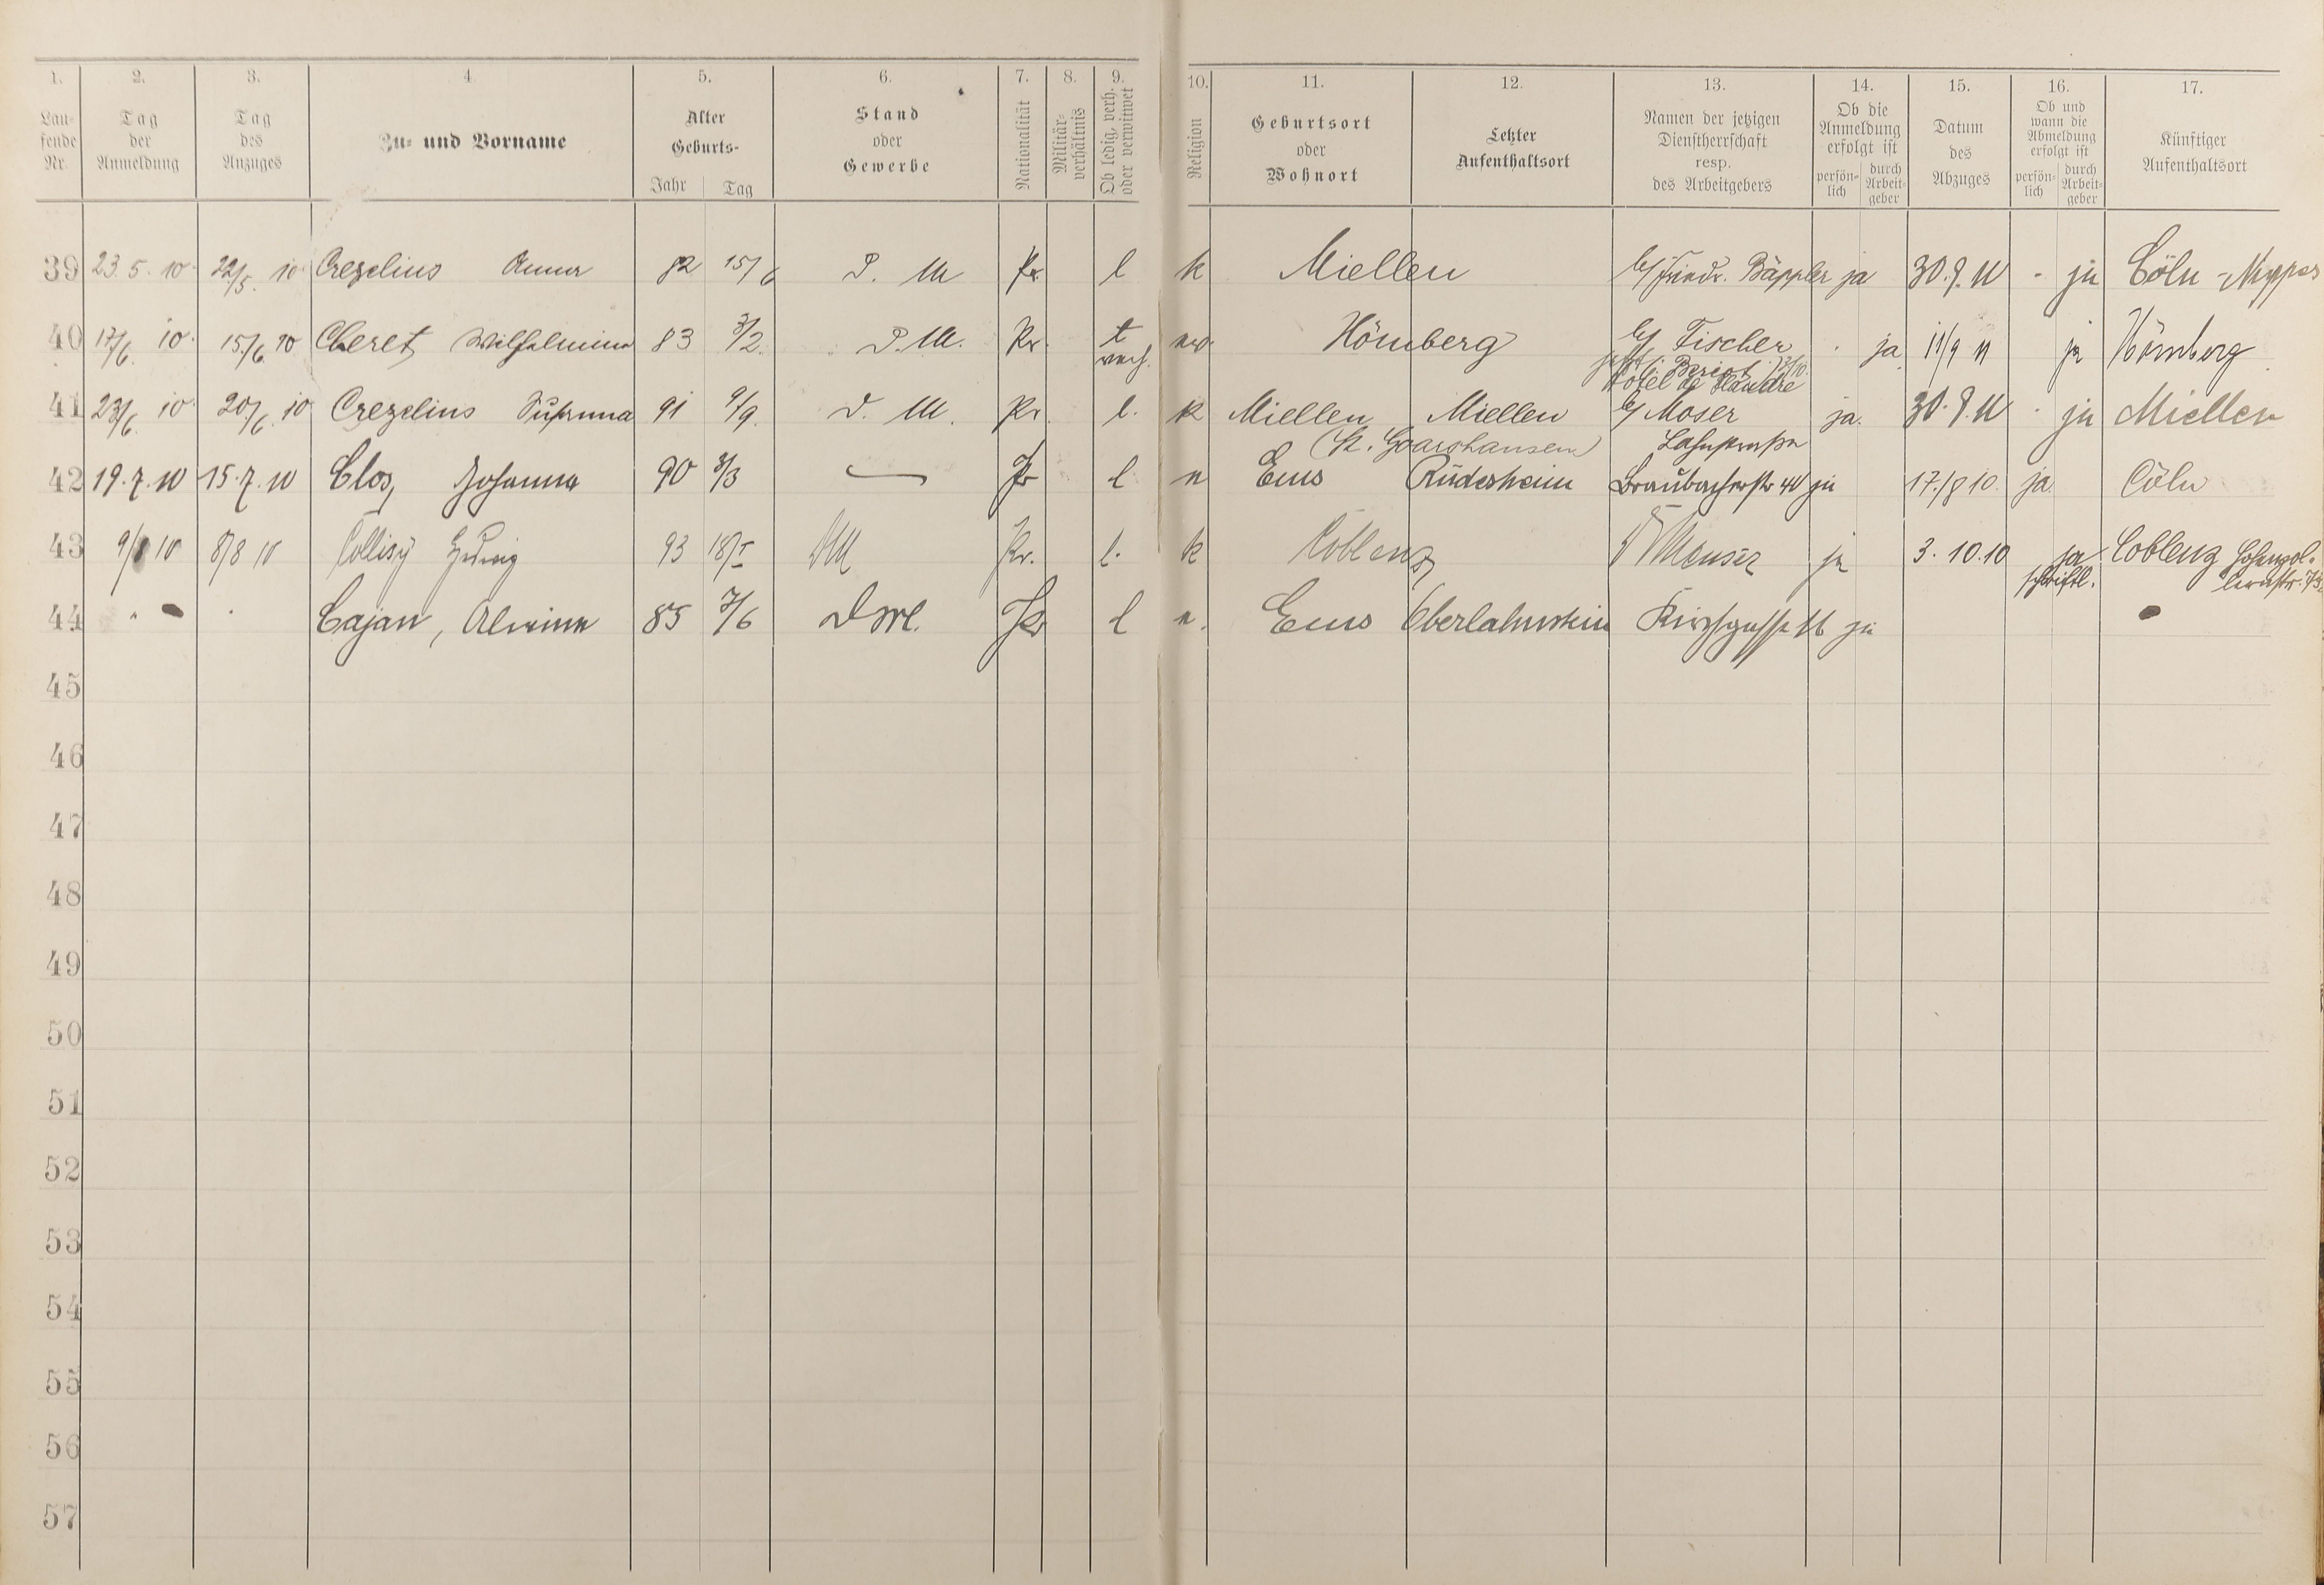 1. 2. 3. 4. 5. 6. 7. 8. 9. 10. 11. 12. 13. 14. 15. 16. 17.
Laufende Nr.
Tag der Anmeldung
Tag des Anzuges
Zu- und Vorname
Alter Geburts-
Jahr Tag
Stand oder Gewerbe
Nationalität
Militär-verhältnis
Ob ledig, verh. oder verwitwet
Religion
Geburtsort oder Wohnort
Letzter Aufenthaltsort
Namen der jetzigen Dienstherrschaft resp. des Arbeitgebers
Ob die Anmeldung erfolgt ist
persönlich durch Arbeitgeber
Datum des Abzuges
Ob und wann die Abmeldung erfolgt ist
persönlich durch Arbeitgeber
Künftiger Aufenthaltsort
39 23.5.10 22/5. 10 Crezelius Anna 82 15/6 D. M Pr. l k Miellen b/ Friedr. Bäppler ja 30.9.10 - ja Cöln-Nippes
40 17/6. 10. 15./6 10 Cheret Wilhelmine 83 3/2. D.M. Pr. Hömberg b/ Fischer . ja 11/9 ja Hömberg
Hotel de Flandre
41 23/6. 10. 20/6. 10 Crezelius Susanna 91 9/9. D. M. Pr. l. k Miellen Miellen b/ Moser ja. 30.9.10 - ja Miellen
(St. Goarshausen) Lahnstraße
42 19.7.10 15.7.10 Clos, Johanna 90 3/3 Pr l Ems Rüdesheim Braubacherstr 44 ja 17./8 10. ja. Cöln
43 9/8 10 8/8 10 Collisy Hedwig 93 18/I DM Pr. l. k Coblenz ja 3.10.10 ja Coblenz Hohenzol-
schriftl. lernstr.
44 " Cajan, Alwine 85 7/6 DM. Pr l Ems Oberlahnstein Kirchgasse ja
45
46
47
48
49
50
51
52
53
54
55
56
57